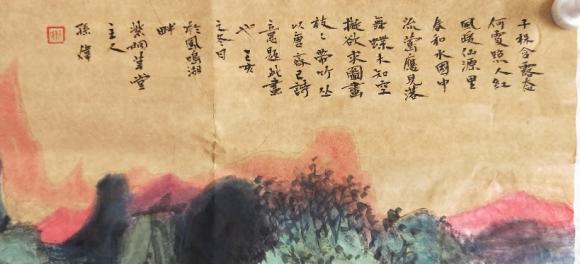 千株含露態
何處照人紅
風暖仙源里
春和水國中
流鶯應見落
舞蝶未知空
擬欲求圖畫
枝々帶竹丛
以唐齊己詩
意題此畫
也 己亥
之冬日
於鳳鳴湖
畔
紫桐草堂
主人
孫偉